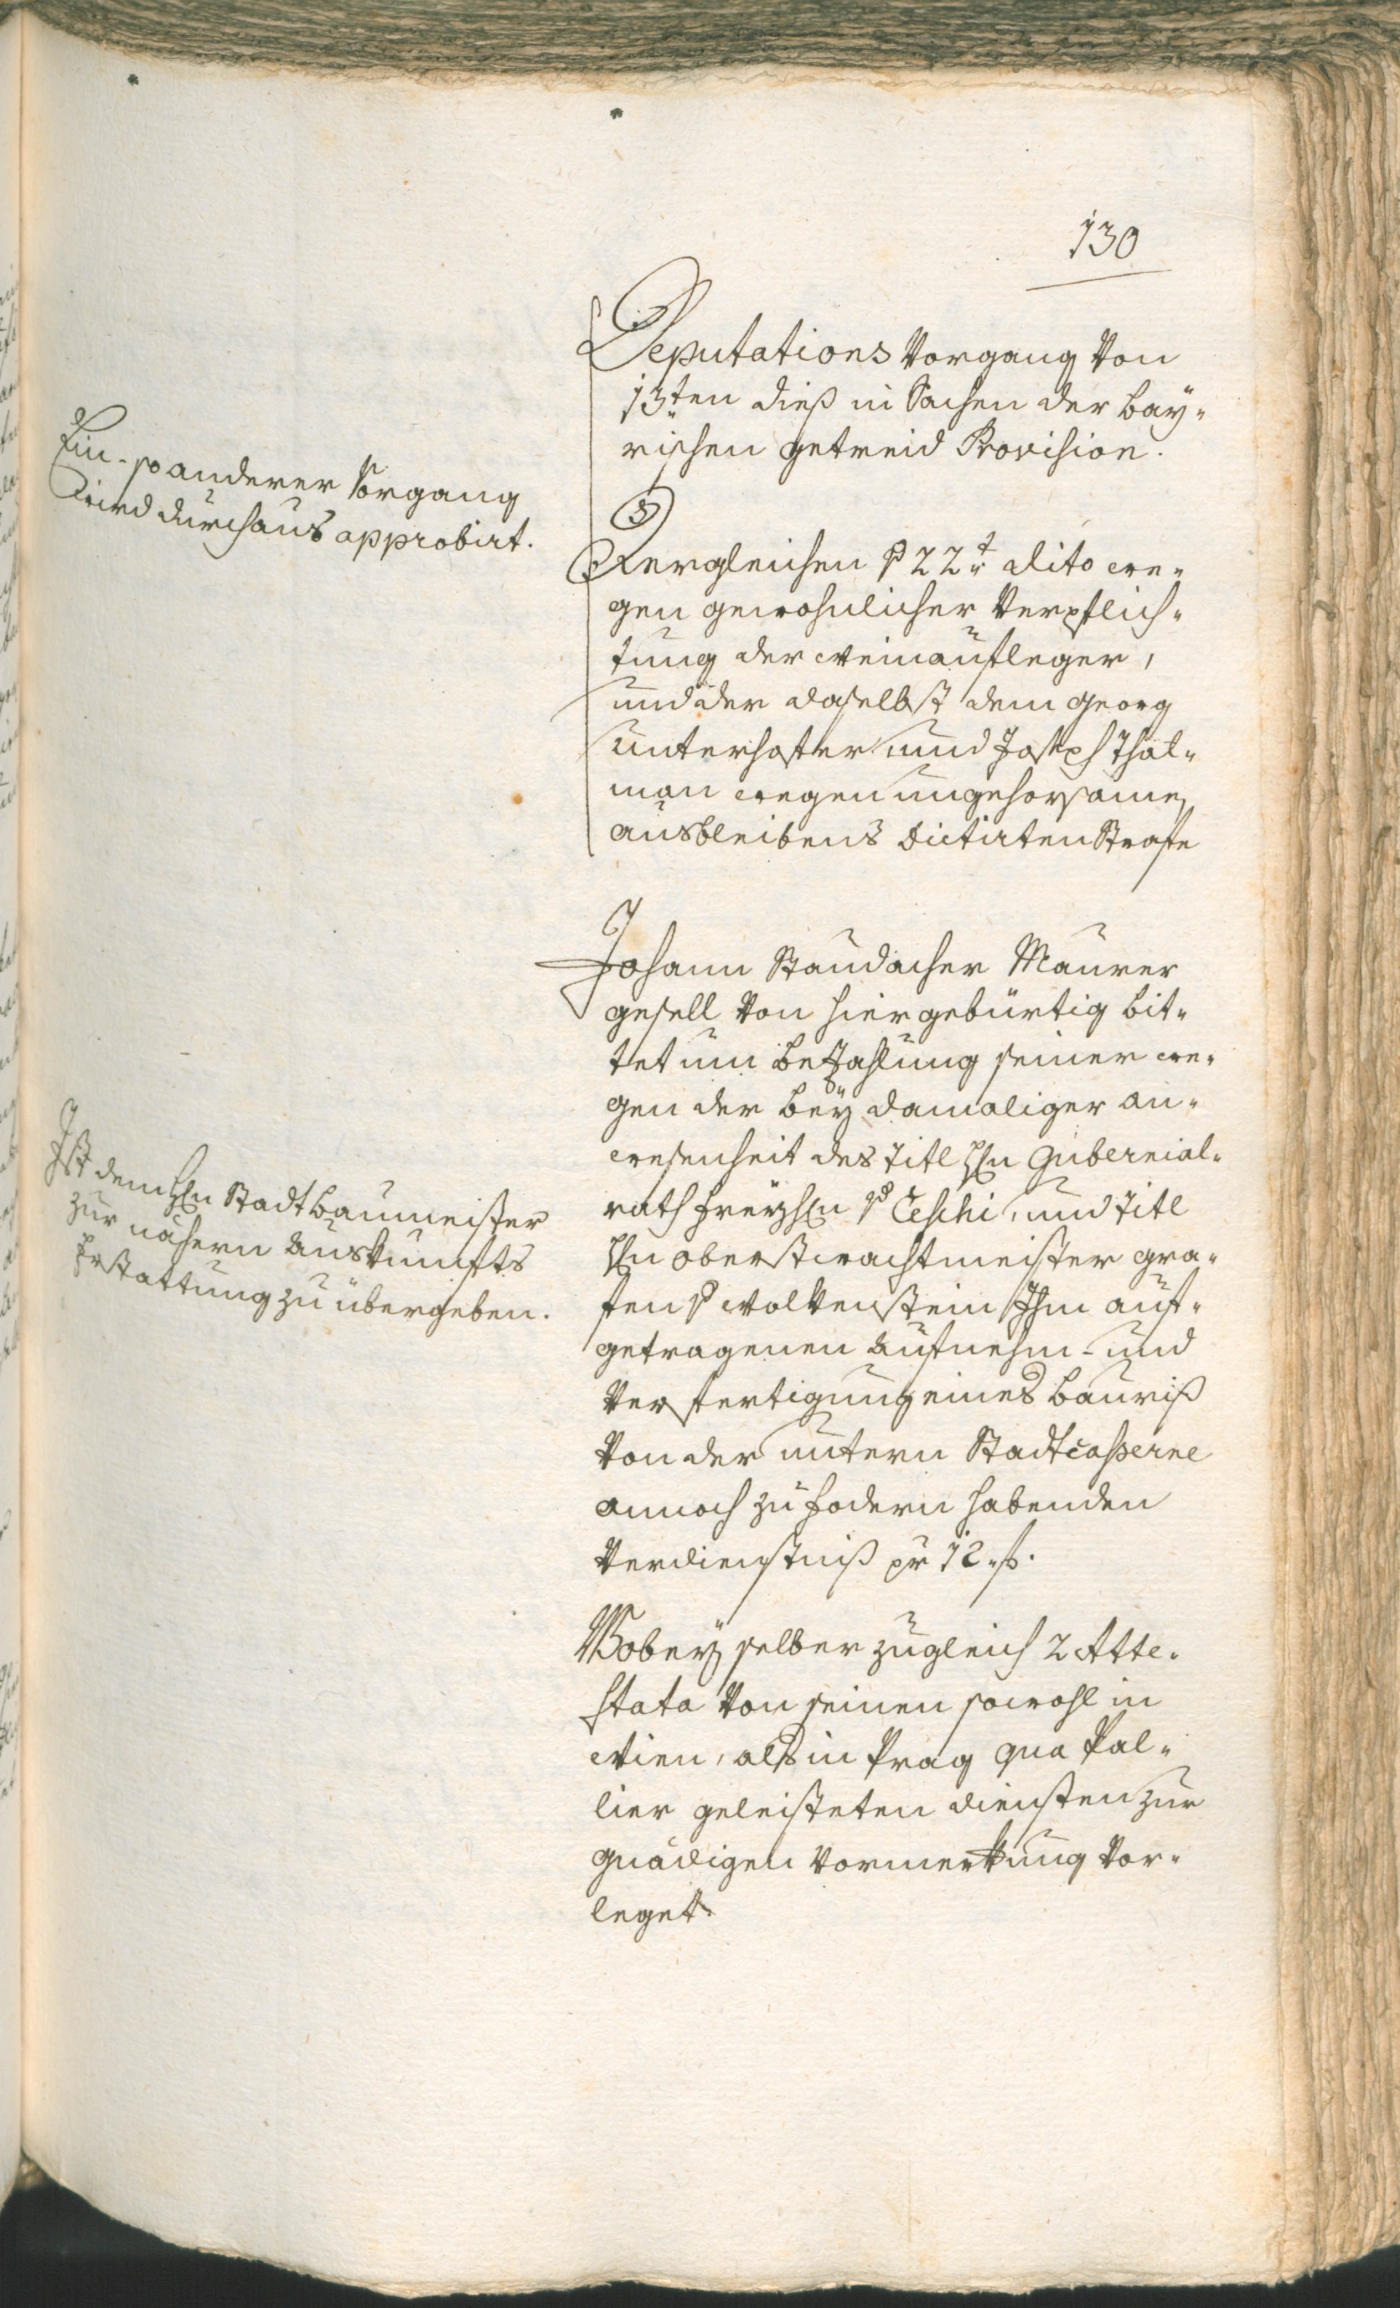 130
Deputations Vorgang von
13ten dieß in Sachen der bay-
rischen getreid Provision.
Ein- so anderer Vorgang
wird durchaus approbirt.
Dergleichen vo 22t dito we-
gen gewohnlicher Verpflich-
tung der Weinaufleger,
und der daselbst dem Georg
Unterhofer und Joseph Thal-
man wegen ungehorsamen
ausbleibens dictirten Strafe
Johann Staudacher Maurer
gesell von hier gebürtig bit-
tet um bezahlung seiner we-
gen der beÿ damaliger an-
wesenheit des titl Hn Gubernial-
rath Freyhn v Ceschi, und titl
Hn Oberstwachtmeister Gra-
fen v Wolkenstein Ihm auf-
getragenen Aufnehm- und
Verfertigung eines bauriß
von der untern Stadtcasserne
annoch zu fodern habenden
Verdienstniß pr 12 f.
Ist dem Hn Stadtbaumeister
zur nähern Auskunfts
Erstattung zu übergeben.
Wobeÿ selber zugleich 2 Atte-
stata von seinen sowohl in
Wien, als in Prag qua Pal-
lier geleisteten diensten zur
gnädigen Vormerkung vor-
leget.